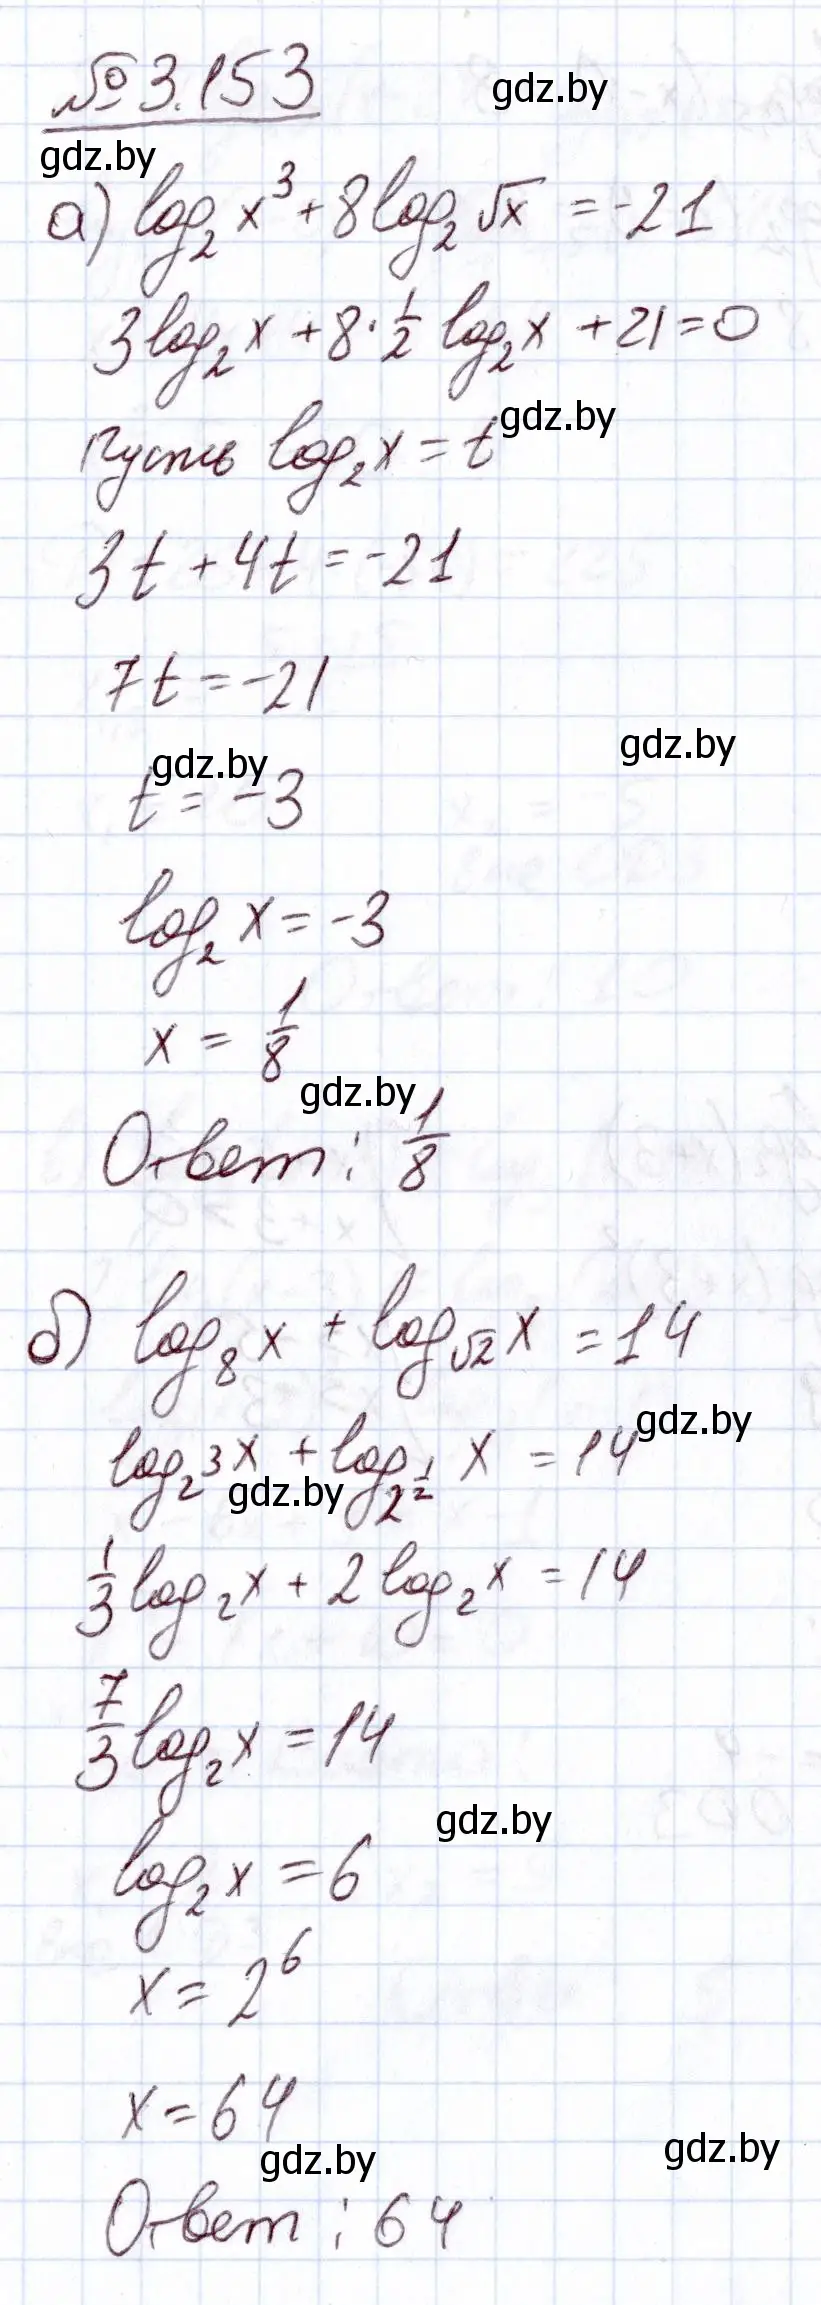 № 3.153
gdz.by
gdz.by
а) log₂ x³ + 8 log₂ √x = -21
3 log₂ x + 8 · 1/2 log₂ x + 21 = 0
gdz.by
пусть log₂ x = t
3t + 4t = -21
7t = -21
gdz.by
gdz.by
t = -3
log₂ x = -3
x = 1/8
gdz.by
Ответ: 1/8
б) log₈ x + log_√2 x = 14
gdz.by
log_2³ x + log_2^(1/2) x = 14
gdz.by
1/3 log₂ x + 2 log₂ x = 14
7/3 log₂ x = 14
gdz.by
log₂ x = 6
x = 2⁶
x = 64
gdz.by
gdz.by
Ответ: 64